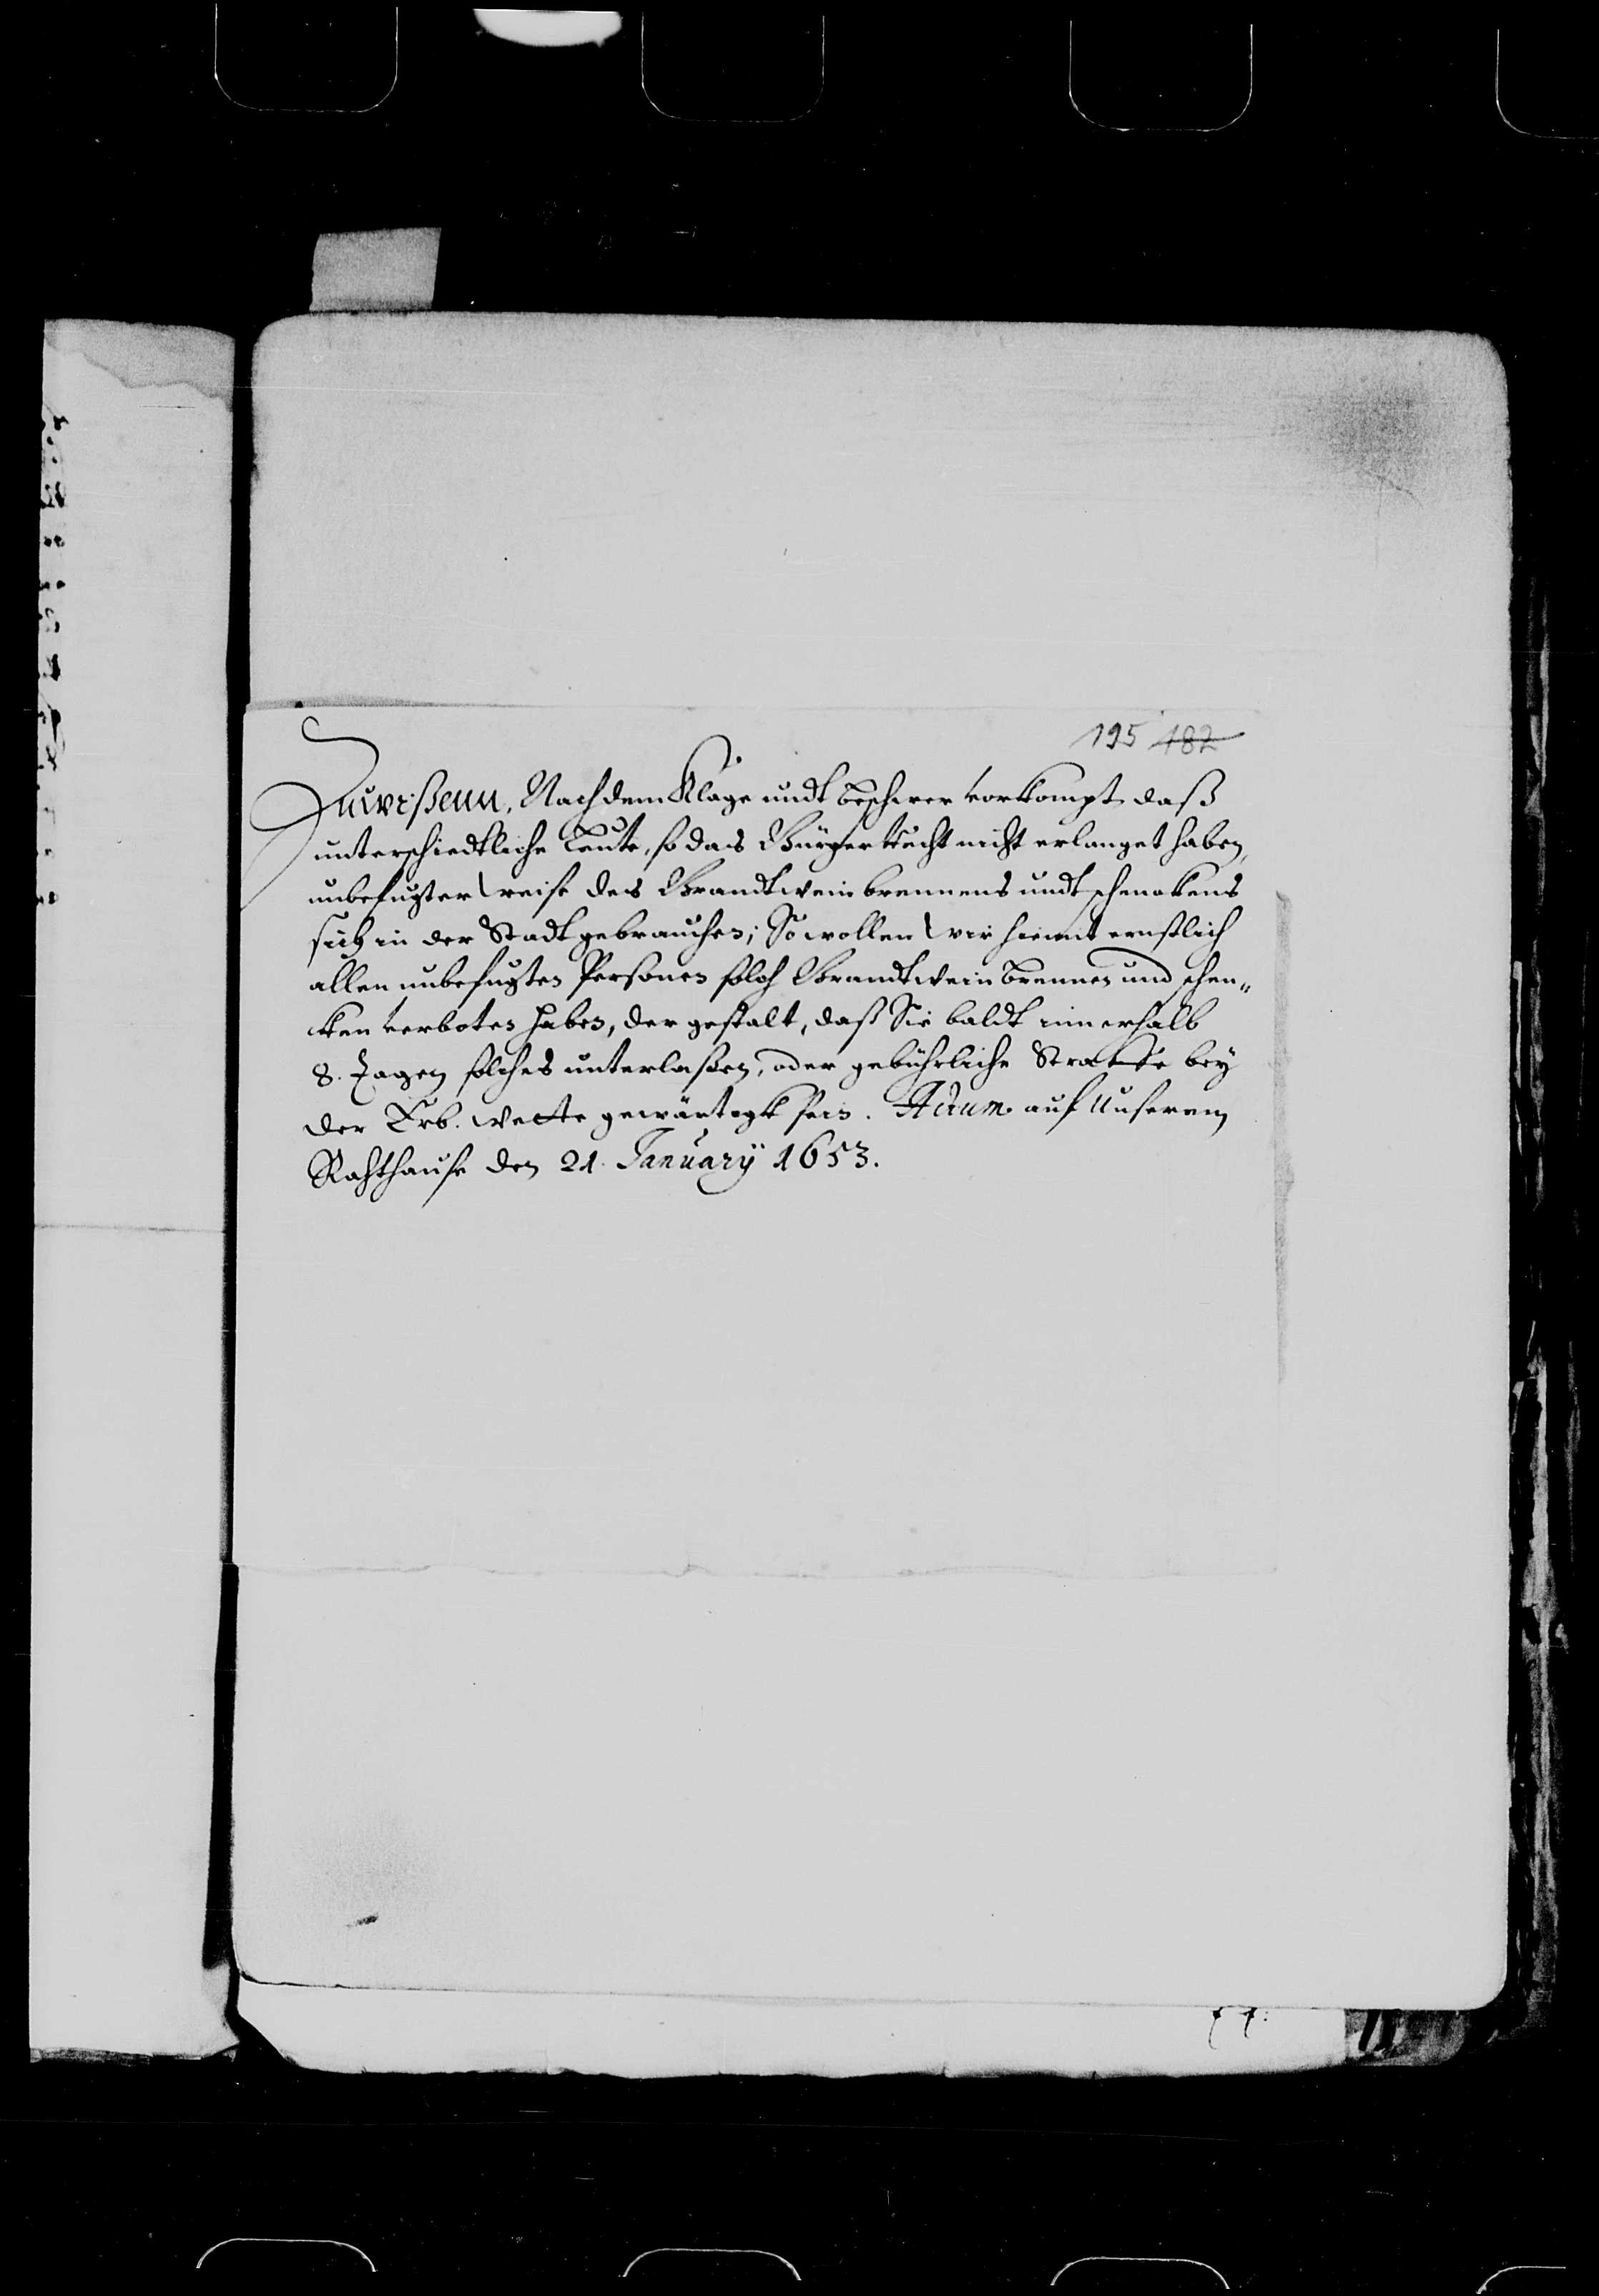 195 182
Zuwißenn, Nachdem Klage undt beschwer vorkompt daß
unterschiedtliche Leute, so das Bürgerrecht nicht erlanget haben,
unbefugter weise des Brandtwein brennens undt schenckens
sich in der Stadt gebrauchen; So wollen wir hiemit ernstlich
allen unbefugten Personen solch Brandtwein brennen und schen„
cken verboten haben, der gestalt, daß Sie baldt innerhalb
8. Tagen solches unterlaßen, oder gebührliche Straffe bey
der Erb. wette gewärtigk sein. Actum auf Unserem
Rahthause den 21. January 1653.